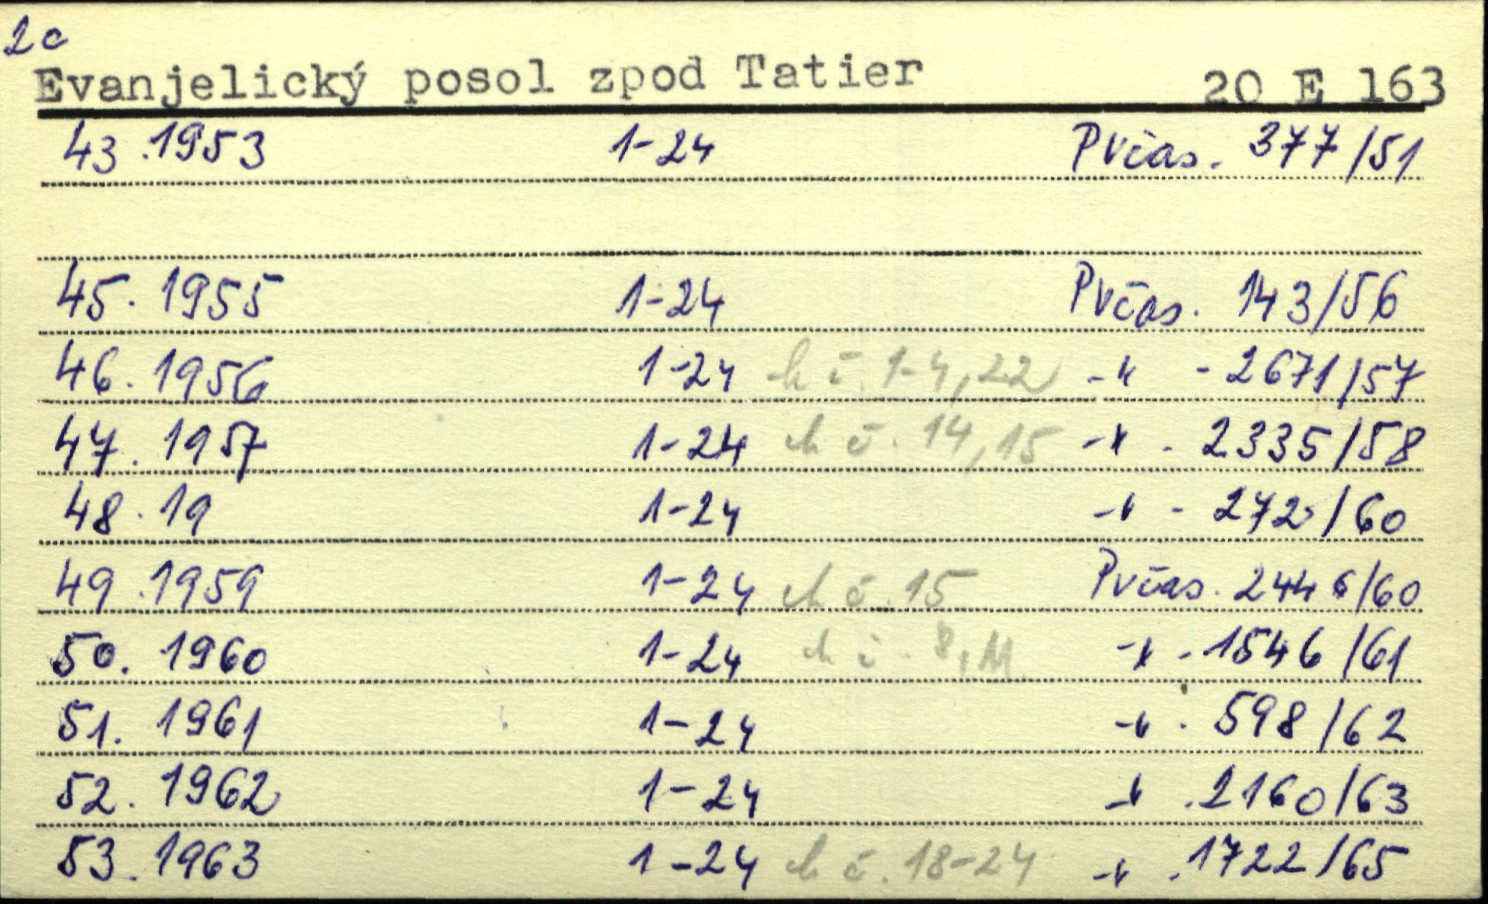 2c
Evanjelický posol zpod Tatier 20 E 163
43. 1953 1-24 Pvčas. 377/51
45. 1955 1-24 Pvčas. 143/56
46. 1956 1-24 ch č. 1-4, 22 -"- 2671/57
47. 1957 1-24 ch č. 14, 15 -"- 2335/58
48. 19 1-24 -"- 272/60
49. 1959 1-24 ch č. 15 Pvčas. 2446/60
50. 1960 1-24 ch č. 8, 11 -"- 1546/61
51. 1961 1-24 -"- 598/62
52. 1962 1-24 -"- 2160/63
53. 1963 1-24 ch č. 18-24 -"- 1722/65